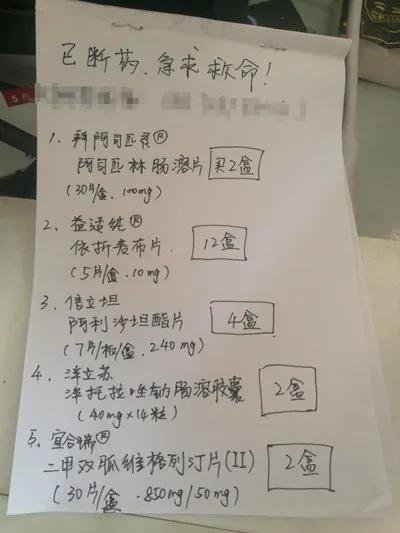 已断药，急求救命！
1、拜阿司匹灵®
阿司匹林肠溶片 买2盒
(30片/盒，100mg)
2、益适纯®
依折麦布片 12盒
(5片/盒，10mg)
3、信立坦
阿利沙坦酯片 4盒
(7片/板/盒，240mg)
4、泽立苏
泮托拉唑钠肠溶胶囊 2盒
(40mg×14粒)
5、宜合瑞®
二甲双胍维格列汀片(II) 2盒
(30片/盒，850mg/50mg)